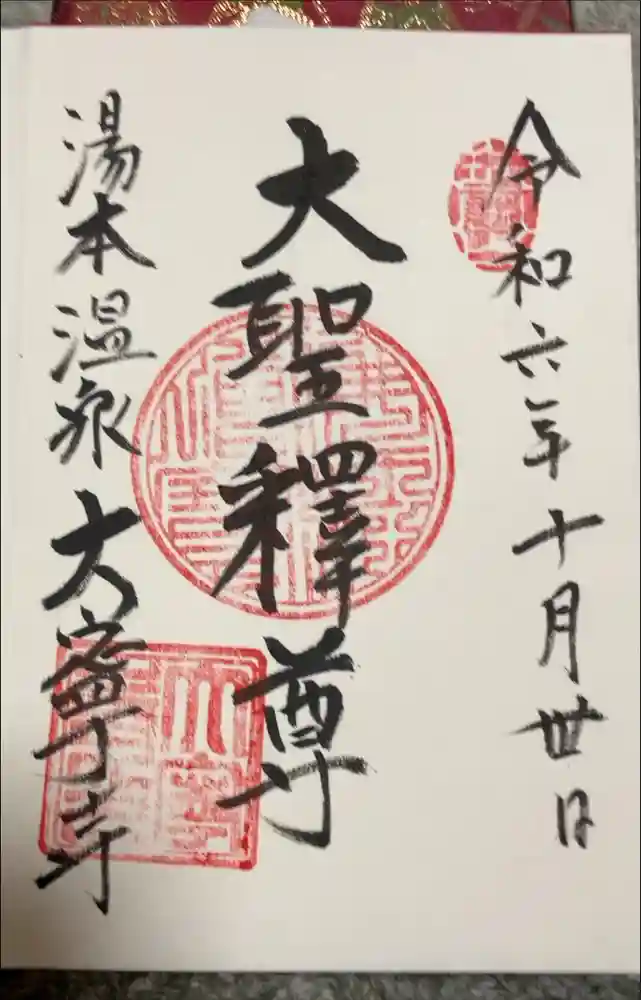 令和六年十月卅日
大聖釋尊
湯本温泉大寧寺